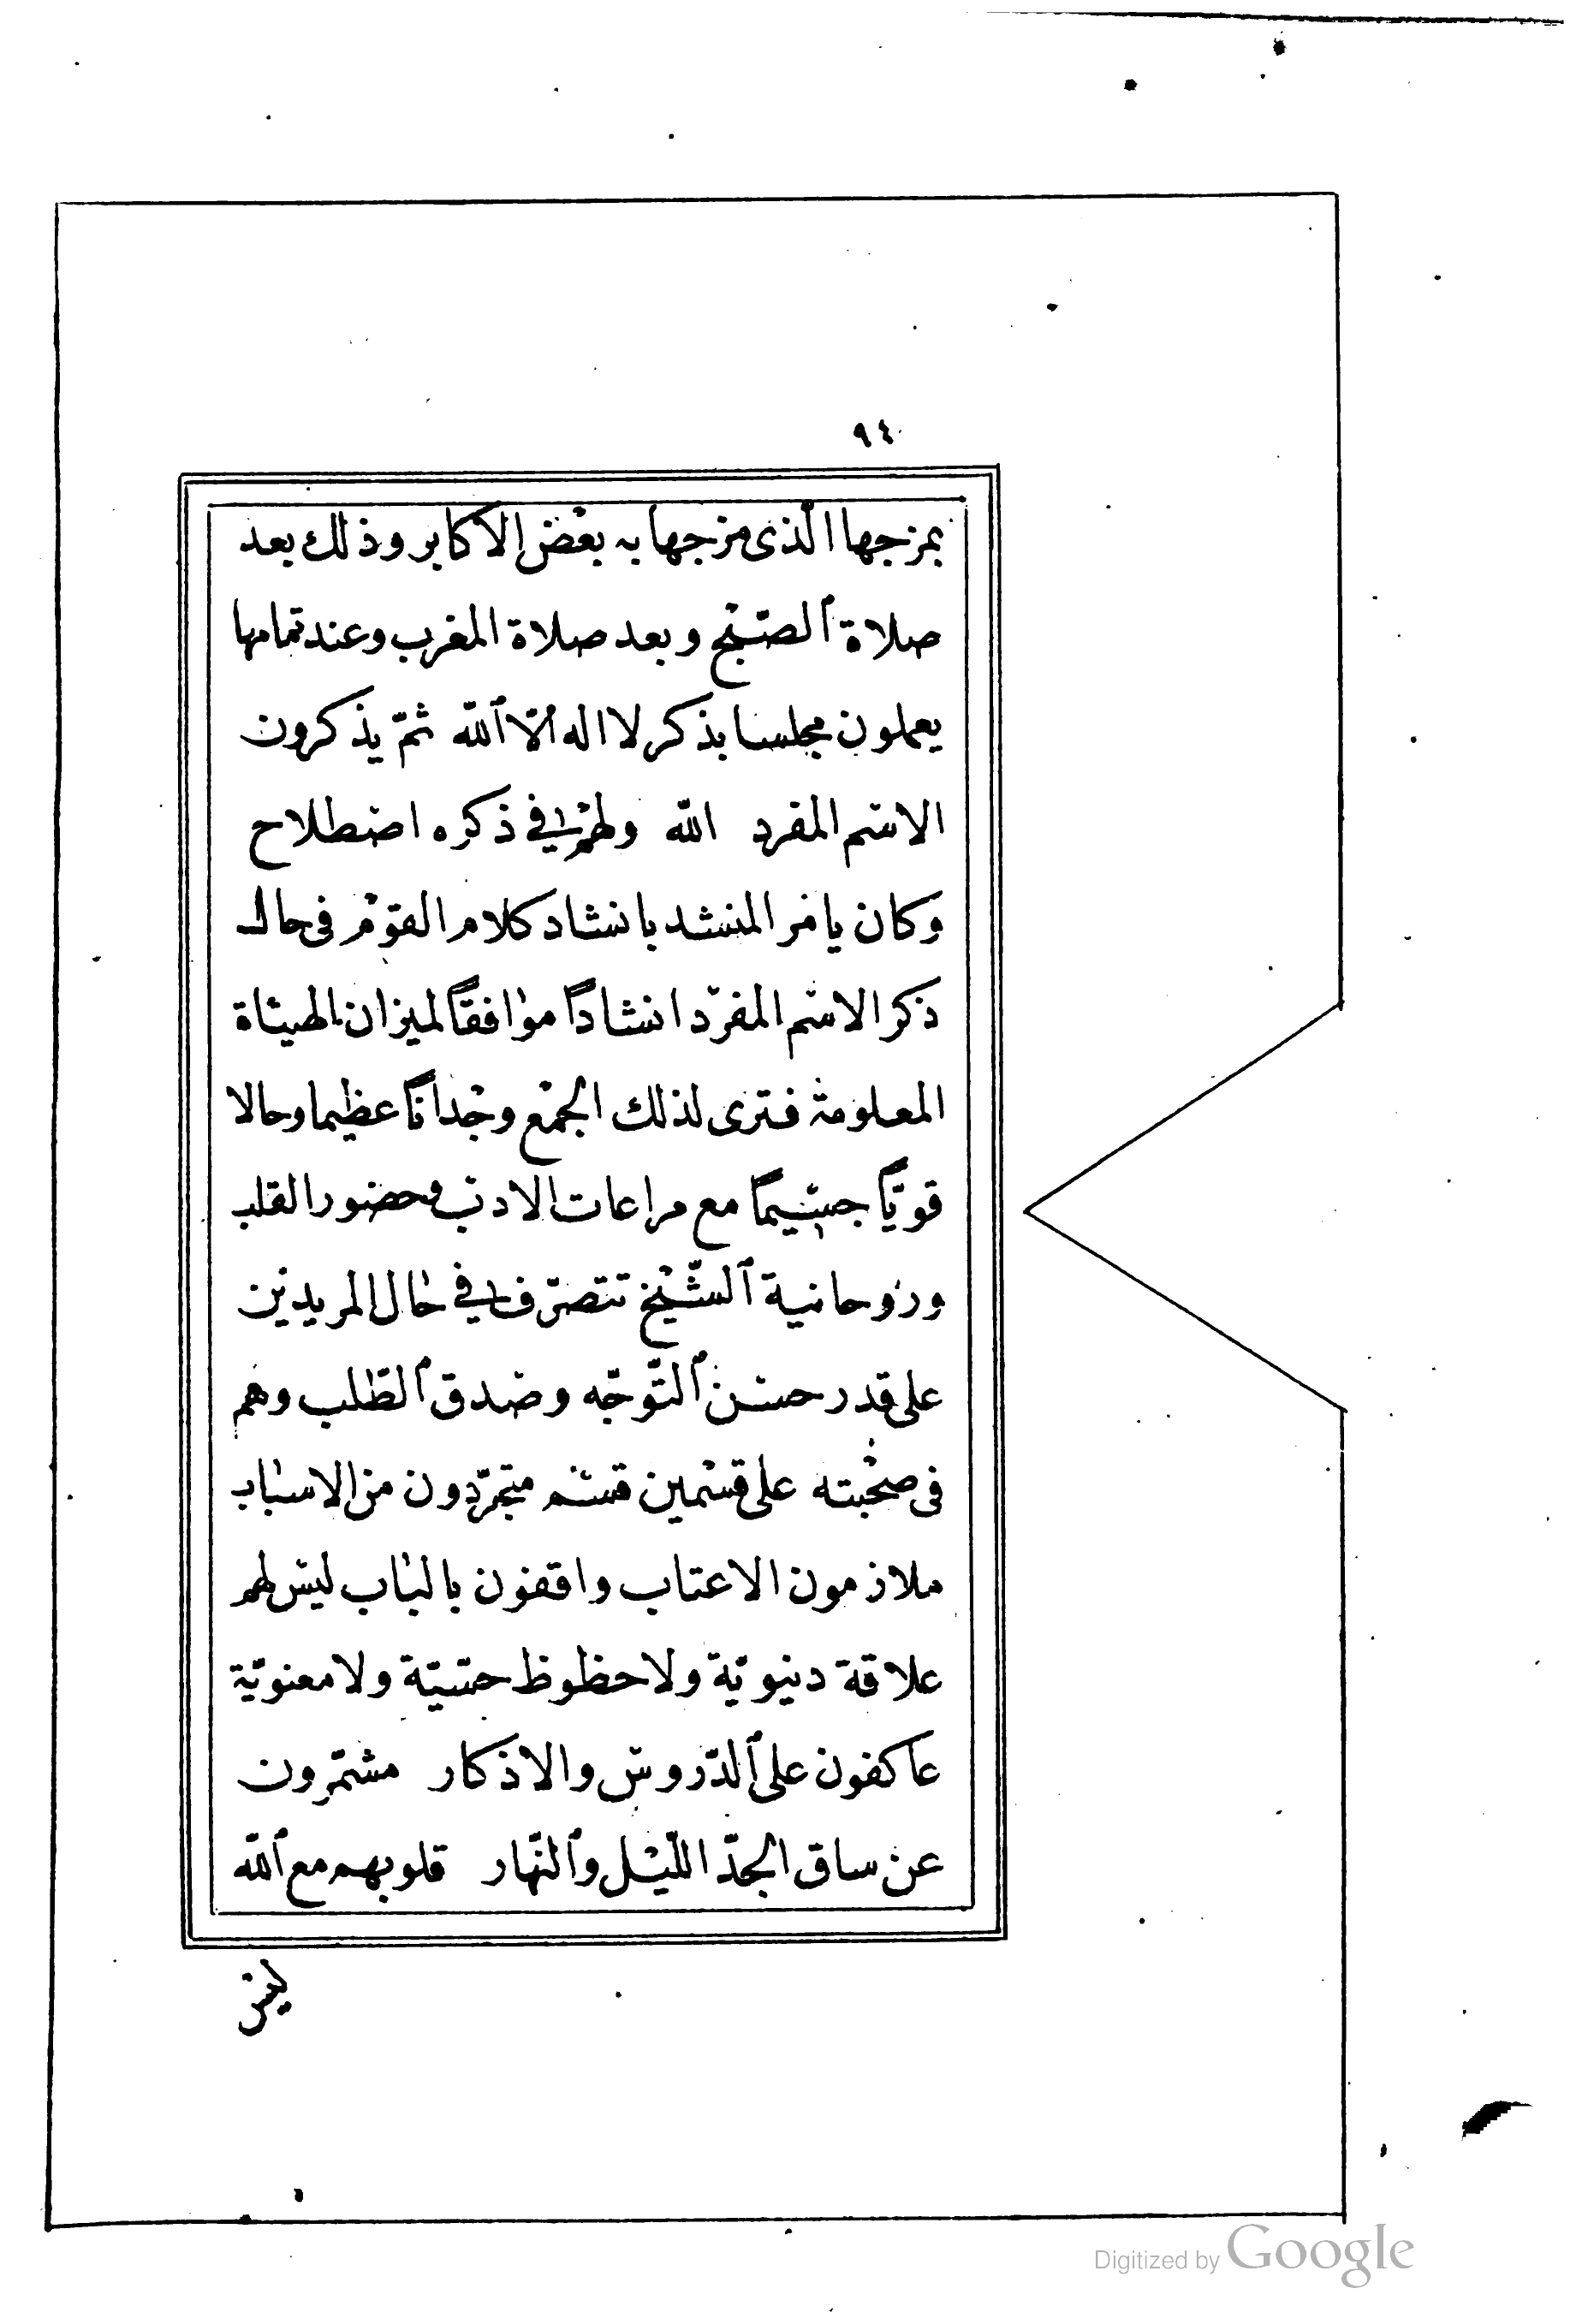 ٩٤
بمزجها الّذى مزجها به بعْض الاكابر وذلك بعد
صلاة ٱلصّبْح وبعد صلاة المغرب وعند تمامها
يعملون مجلسا بذكر لا اله الّا ٱللّه ثمّ يذكرون
الاسْم المفرد اللّه ولهمْ في ذكره اصْطلاح
وكان يامْر المنشد بانشاد كلام القوْم فى حال
ذكر الاسْم المفرْد انشاداً موافقاً لميزان الهيئاة
المعلومة فترى لذلك الجمْع وجْداناً عظيما وحالا
قويّاً جسيماً مع مراعات الادب وحضور القلب
وروحانية ٱلشّيْخ تتصرّف في حال المريدين
على قدر حسْن ٱلتّوجّه وصْدق ٱلطّلب وهم
فى صحْبته على قسْمين قسْم متجرّدون من الاسباب
ملازمون الاعتاب واقفون بالباب ليْس لهم
علاقة دنيويّة ولا حظوظ حسّيّة ولا معنويّة
عاكفون على ٱلدّروس والاذكار مشمّرون
عن ساق الجدّ اللّيْل وٱلنّهار قلوبهم مع ٱللّه
ليْس
Digitized by Google